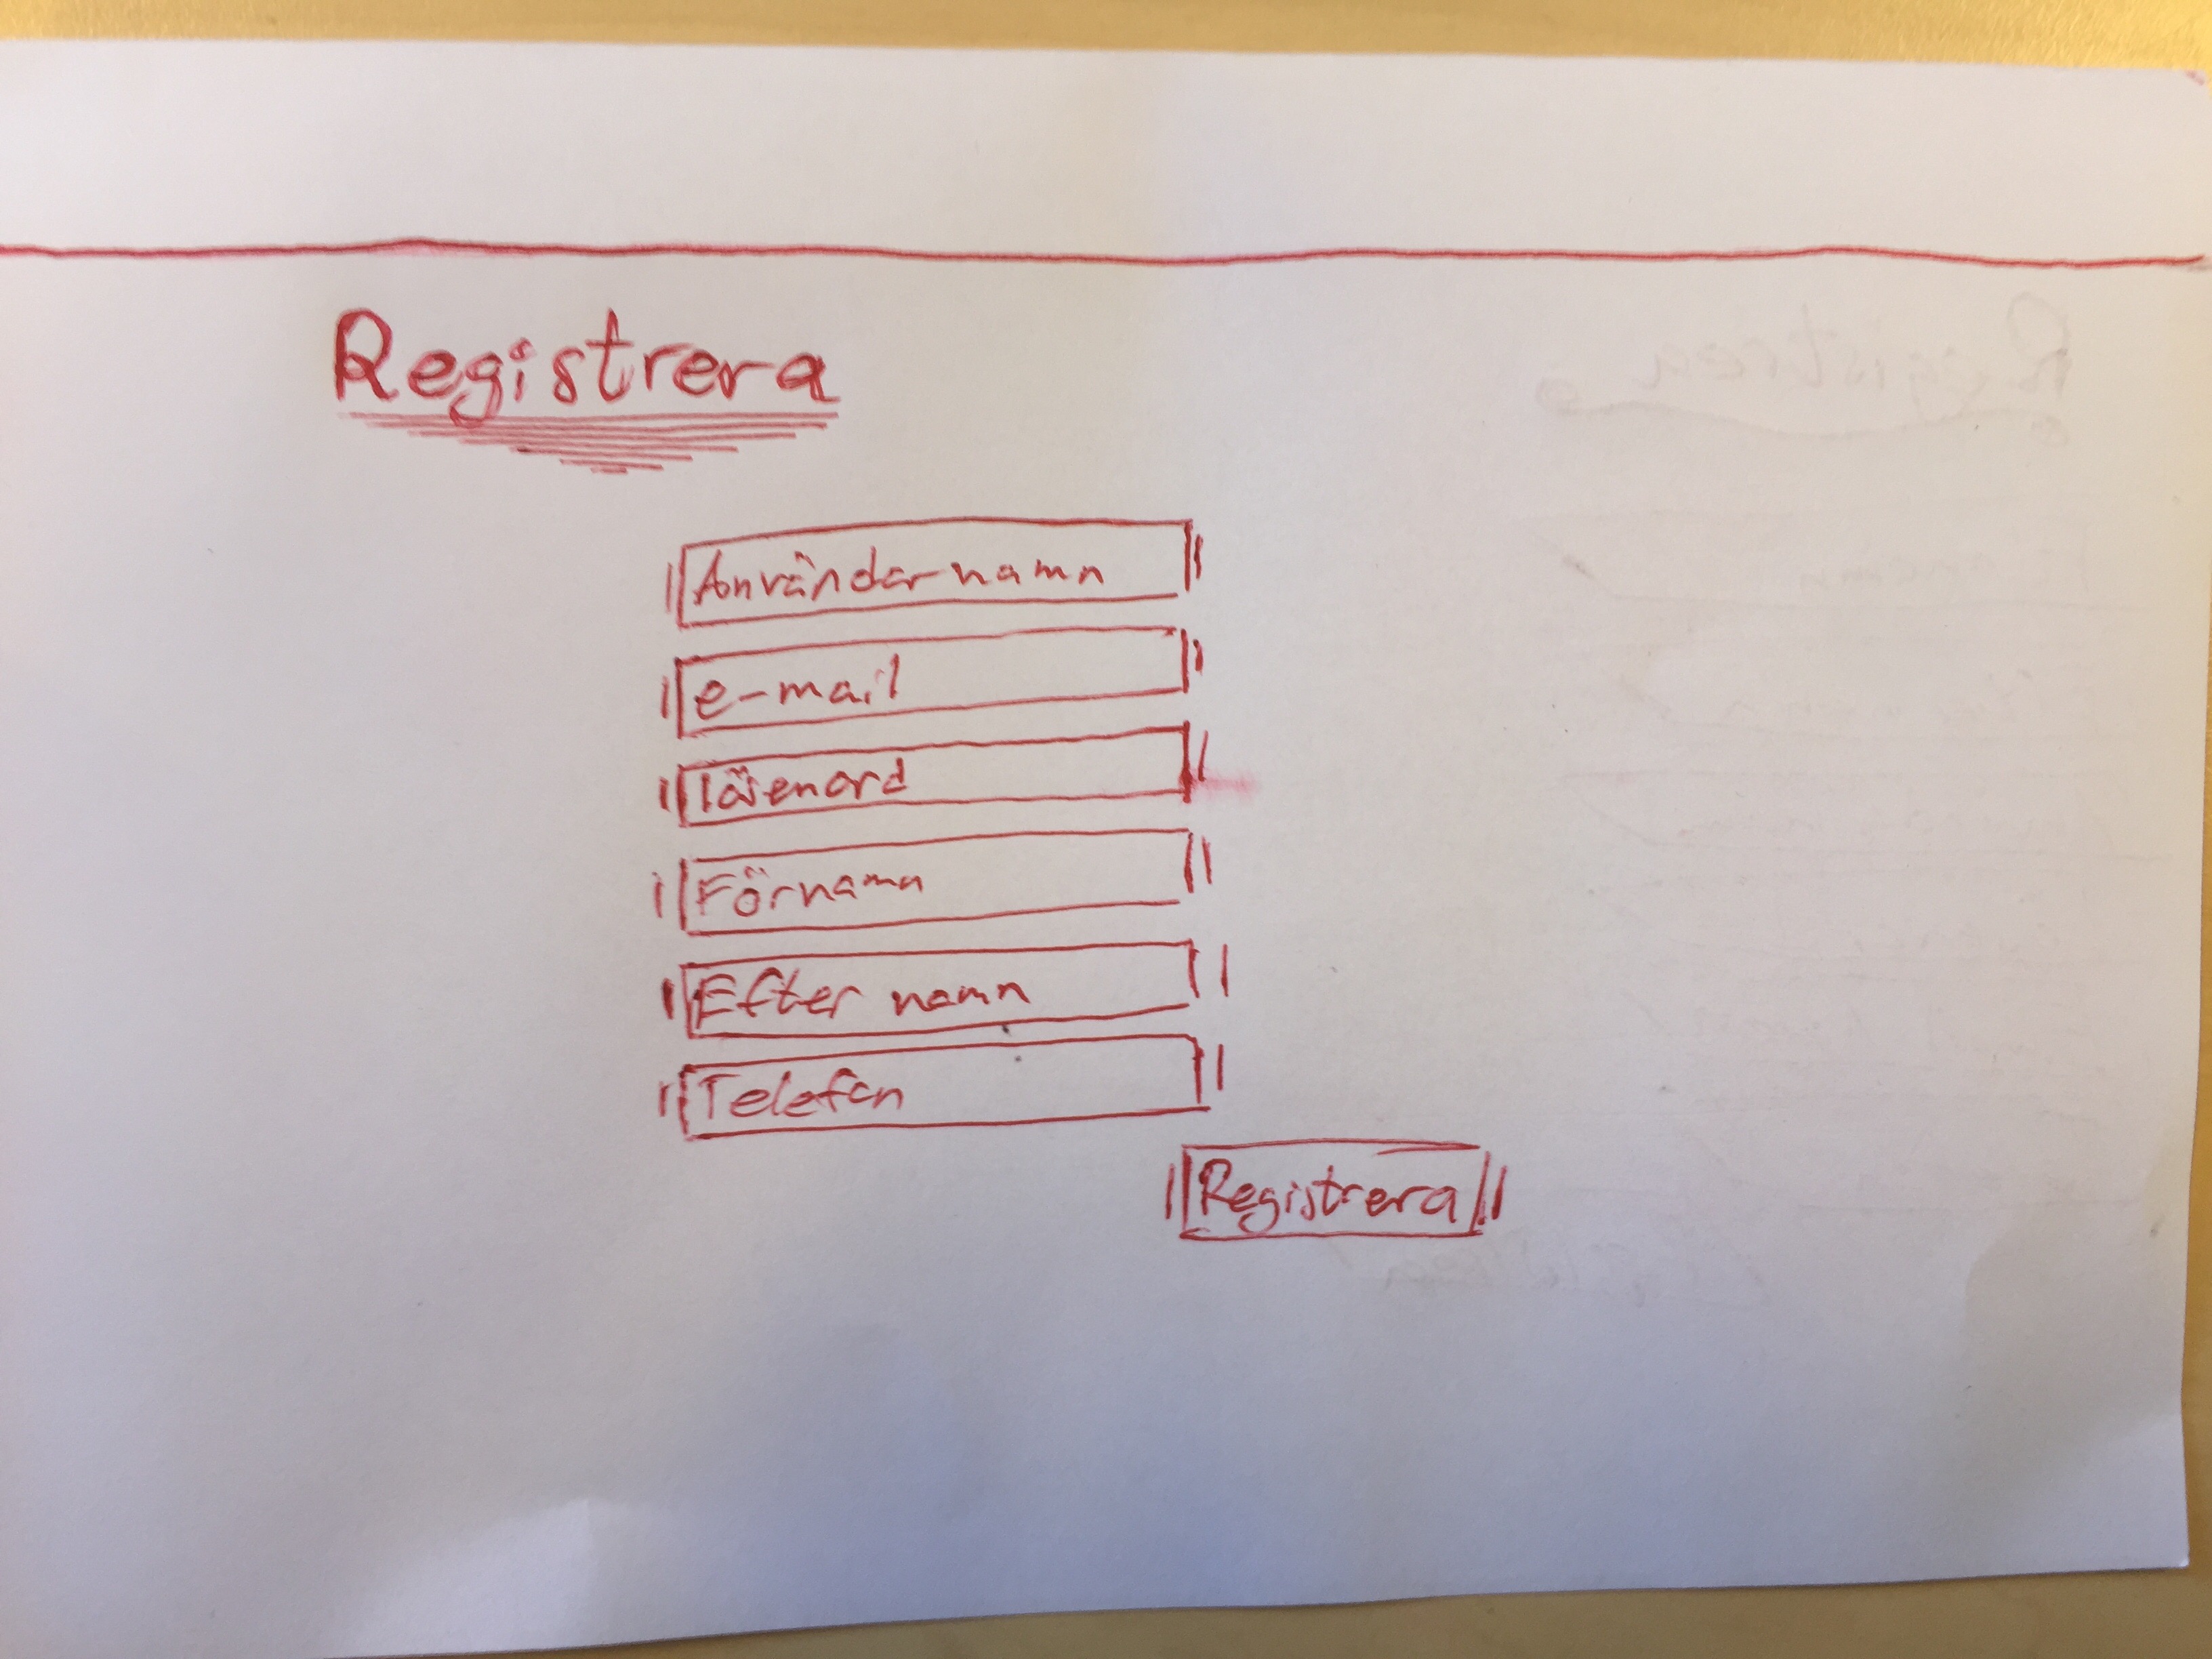 Registrera
Användarnamn
e-mail
lösenord
Förnamn
Efter namn
Telefon
Registrera